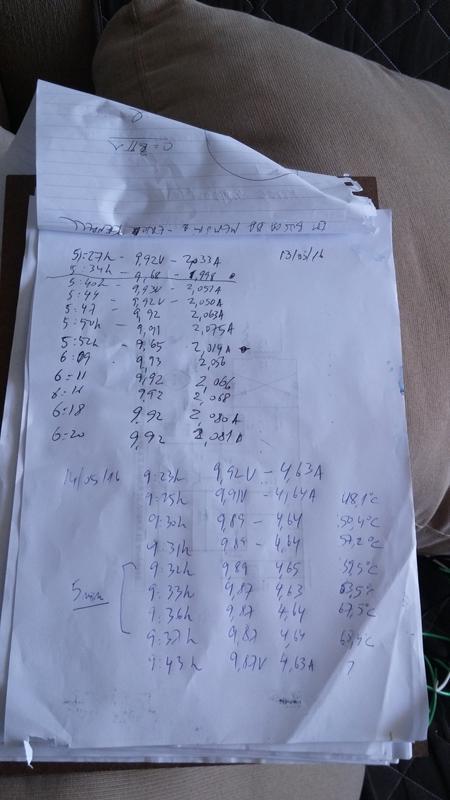 C = 2πr
13/05/16
5:27h - 9,92V - 2,033A
5:34h - 9,68 - 1,998
5:40h - 9,93V - 2,051A
5:44 - 9,92V - 2,050A
5:47 - 9,92 2,063A
5:50h - 9,91 2,075A
5:52h - 9,65 2,014A
6:09 - 9,93 2,056
6:11 9,92 2,066
9,92 2,068
6:18 9,92 2,080A
6:20 9,92 2,081A
14/05/16 9:23h 9,92V - 4,63A
9:25h 9,91V - 4,64A 48,1°C
9:30h 9,89 - 4,64 50,4°C
9:31h 9,89 - 4,64 57,2°C
9:32h 9,89 4,65 59,5°C
5 min 9:33h 9,87 4,63 63,5°C
9:36h 9,87 4,64 67,5°C
9:37h 9,87 4,64 68,4°C
9:43h 9,87V 4,63A ?